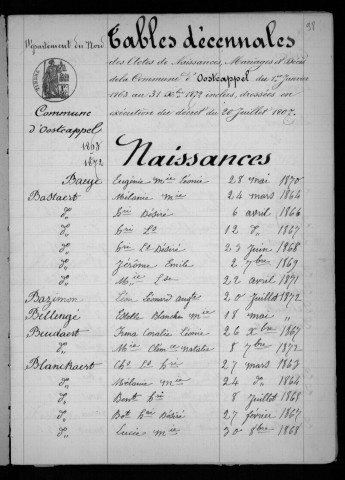 58
Département du Nord
Tables décennales
des Actes de Naissances, Mariages et Décès
de la Commune d'Oostcappel du 1er Janvier
1863 au 31 Xbre 1872 inclus, dressées en
exécution du décret du 20 Juillet 1807.
Commune
d'Oostcappel
1863
1872
Naissances
Baeye Eugénie Mie Léonie 28 mai 1870
Bastaert Mélanie Mie 24 mars 1864
Do Hri Désiré 6 avril 1866
Do Hri Ls 12 do 1867
Do Hri Ls Désiré 23 juin 1868
Do Jérôme Emile 2 7bre 1869
Do Mie Lse 22 avril 1871
Bazimon Léon Léonard 20 juillet 1872
Bellengé Estelle Blanche Mie 18 mai "
Beudaert Irma Coralie Léonie 26 Xbre 1867
Do Mie Clemce Natalie 8 7bre 1872
Blanckaert Chs Ls Hri 27 mars 1863
Do Mélanie Mie 24 do 1864
Do Hri 8 juillet 1865
Do Hri Désiré 27 février 1867
Do Lucie Mie 30 8bre 1868